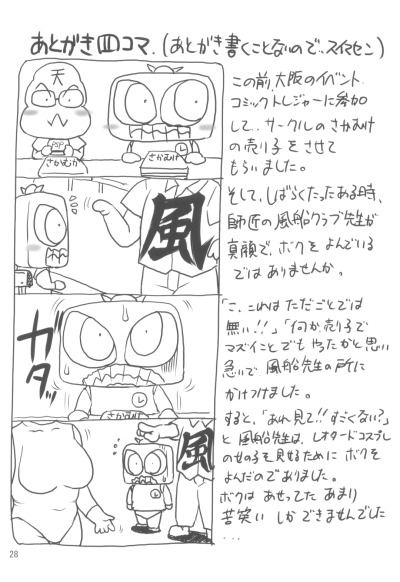 あとがき四コマ.(あとがき書くことないので..スイマセン)
天
PSP
さかむけ
さかむけ
風
ガタッ
さかむけ
風
この前、大阪のイベント
コミックトレジャーに参加
して、サークルのさかむけ
の売り子をさせて
もらいました。
そして、しばらくたったある時、
師匠の風船クラブ先生が
真顔で、ボクをよんでいる
ではありませんか。
「こ、これはただごとでは
無い!!」「何か売り子で
マズイことでもやったかと思い
急いで風船先生の所に
かけつけました。
すると、「あれ見て!!すごくない?」
と風船先生は、レオタードコスプレ
の女の子を見せるためにボクを
よんだのでありました。
ボクはあせってたあまり
苦笑いしかできませんでした
...
28